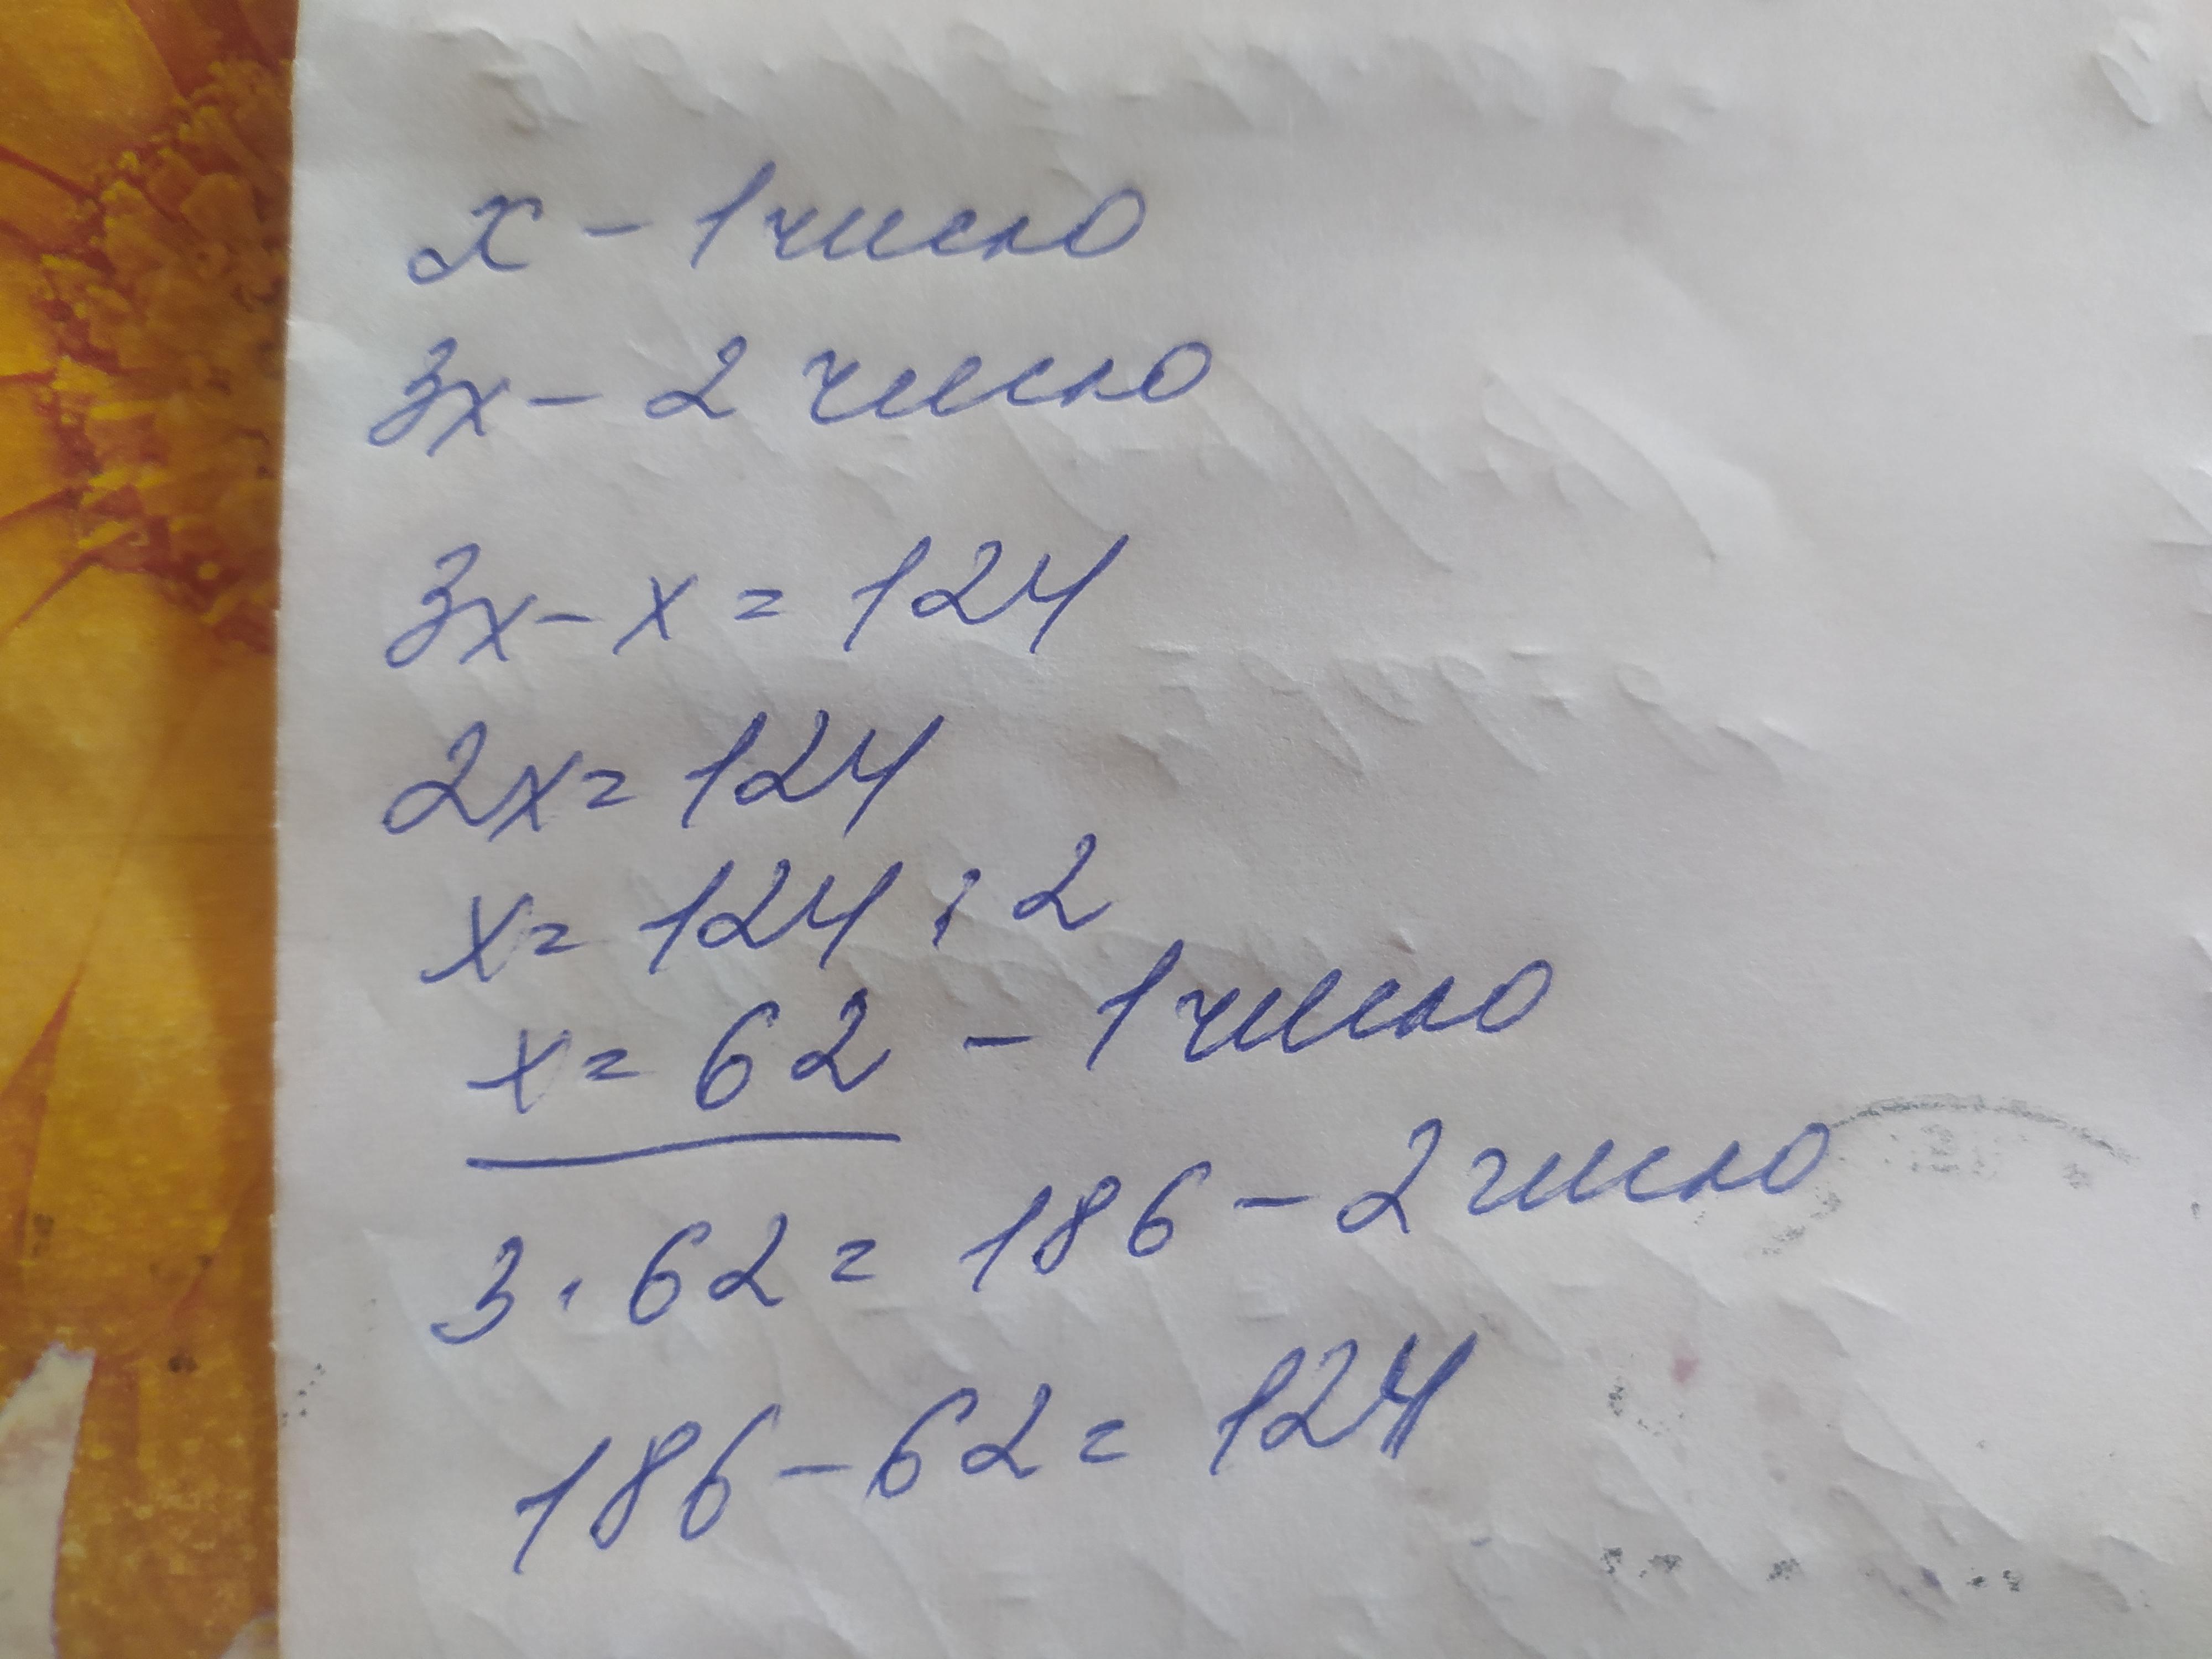 x - 1 число
3x - 2 число
3x - x = 124
2x = 124
x = 124 : 2
x = 62 - 1 число
3 · 62 = 186 - 2 число
186 - 62 = 124